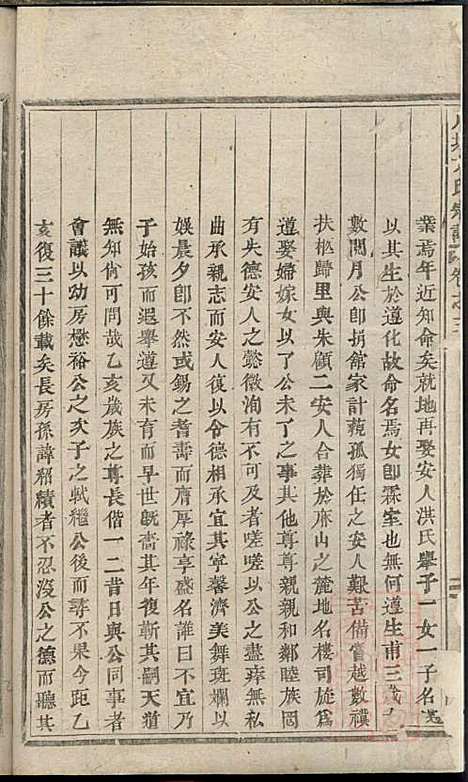 業焉年近知命矣就地再娶安人洪氏舉子一女一子名遵
以其生於遵化故命名焉女卽霖室也無何遵生甫三歲
數閱月公卽捐館家計藐孤獨任之安人艱苦備嘗越數禩
扶柩歸里與朱顧二安人合葬於麻山之麓地名樓司旋爲
遵娶婦嫁女以了公未了之事其他尊尊親親和鄰睦族罔
有失德安人之懿徽洵有不可及者嗟嗟以公之盡瘁無私
曲承親志而安人復以令德相承宜其寧馨濟美舞斑斕以
娛晨夕卽不然或錫之耆壽而膺厚祿享盛名誰曰不宜乃
子始孩而遐舉遵又未育而早世旣嗇其年復斬其嗣天道
無知尙可問哉乙亥歲族之尊長偕一二昔日與公同事者
會議以幼房懋裕公之次子之軾繼公後而尋不果今距乙
亥復三十餘載矣長房孫諱紹績者不忍沒公之德而聽其
氏宗譜 卷之三